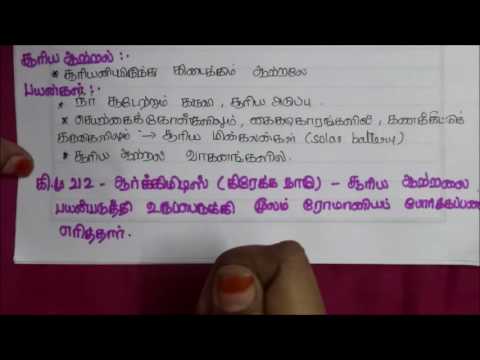 சூரிய ஆற்றல் :-
* சூரியனிலிருந்து கிடைக்கும் ஆற்றலே
பயன்கள் :-
* நீர் சூடேற்றும் கருவி, சூரிய அடுப்பு.
* செயற்கைக்கோள்களிலும், கைகடிகாரங்களில், கணக்கீட்டுக்
கருவிகளிலும் :→ சூரிய மின்கலன்கள் (solar battery)
* சூரிய ஆற்றல் வாகனங்களில்.
கி.மு 212 - ஆர்க்கிமிடிஸ் (கிரேக்க நாடு) - சூரிய ஆற்றலை
பயன்படுத்தி உருப்பெருக்கி மூலம் ரோமானியப் போர்க்கப்பலை
எரித்தார்.